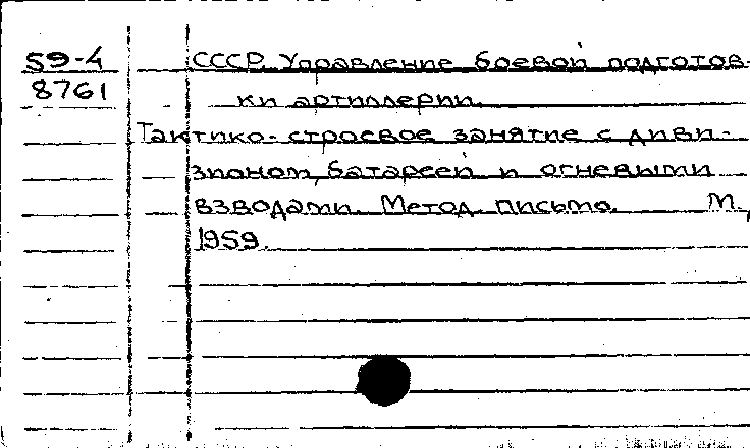 59-4 СССР. Управление боевой подготов-
8761 ки артиллерии.
Тактико-строевое занятие с диви-
зионом, батареей и огневыми
взводами. Метод. письмо. М.,
1959.